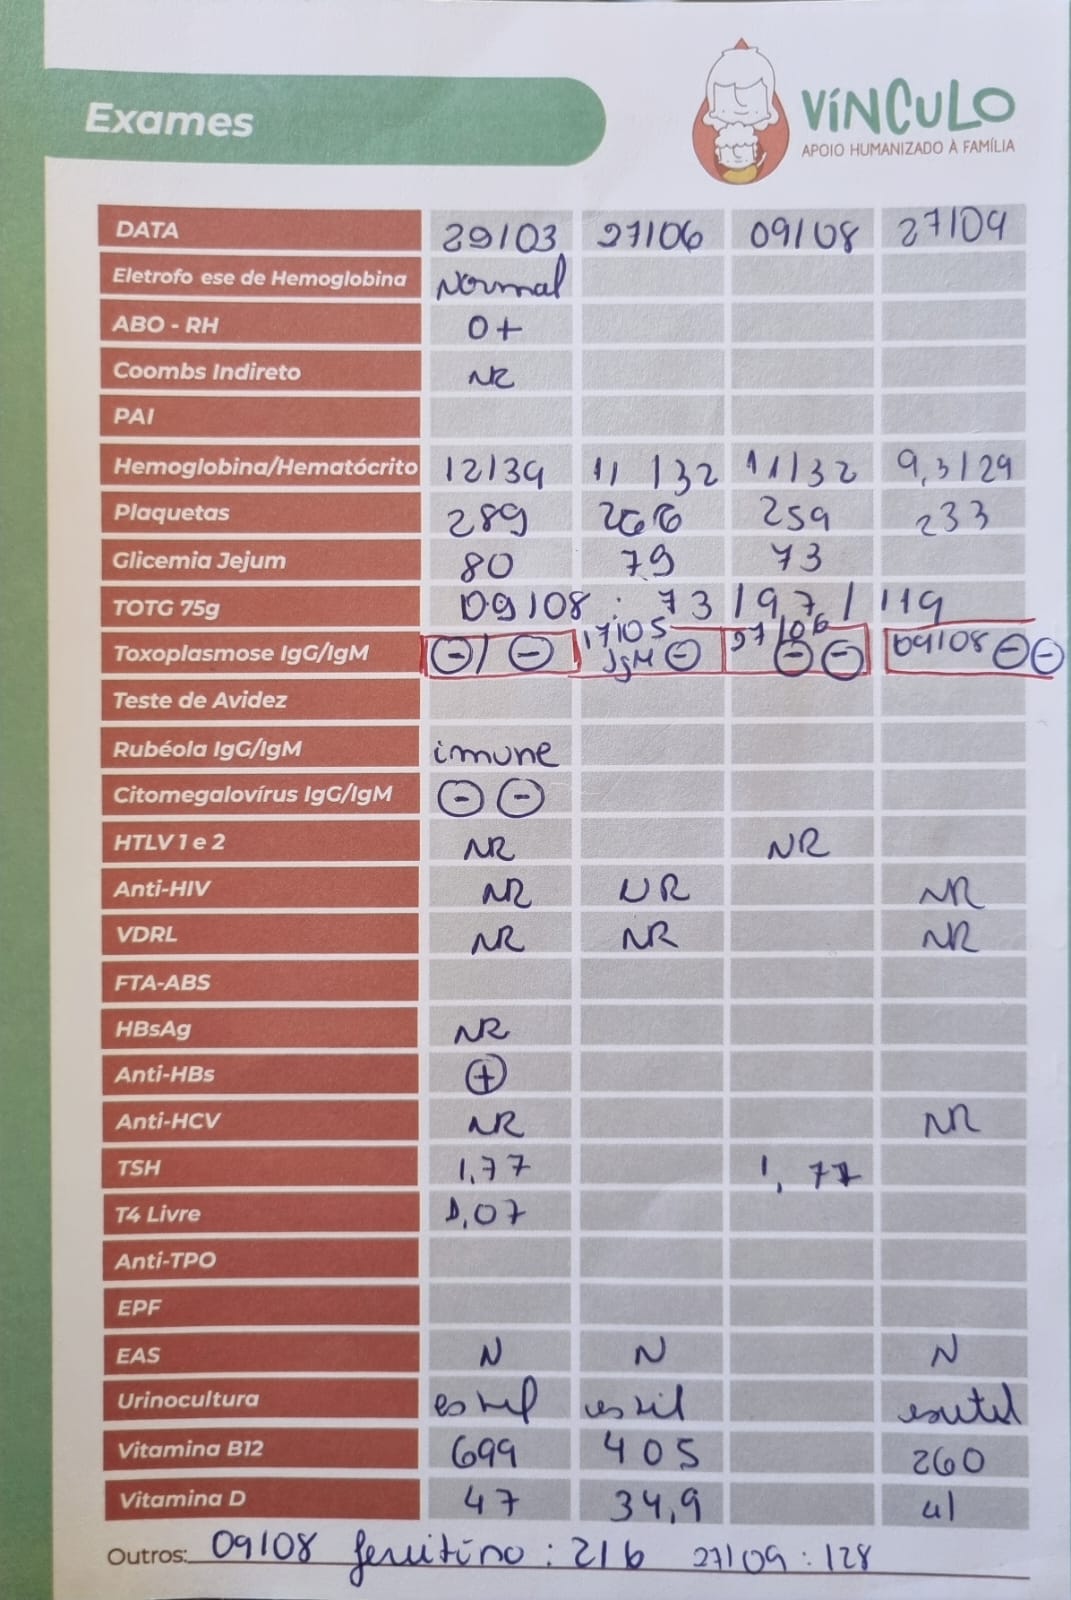 Exames
VÍNCULO
APOIO HUMANIZADO À FAMÍLIA
DATA 29/03 27/06 09/08 27/09
Eletrofo ese de Hemoglobina Normal
ABO - RH O+
Coombs Indireto NR
PAI
Hemoglobina/Hematócrito 12/39 11/32 11/32 9,3/29
Plaquetas 289 266 259 233
Glicemia Jejum 80 79 73
TOTG 75g 09/08: 73/97/119
17/05 27/06
Toxoplasmose IgG/IgM ⊖/⊖ IgM ⊖ ⊖⊖ 09/08 ⊖⊖
Teste de Avidez
Rubéola IgG/IgM imune
Citomegalovírus IgG/IgM ⊖ ⊖
HTLV 1 e 2 NR NR
Anti-HIV NR NR NR
VDRL NR NR NR
FTA-ABS
HBsAg NR
Anti-HBs ⊕
Anti-HCV NR NR
TSH 1,77 1,77
T4 Livre 1,07
Anti-TPO
EPF
EAS N N N
Urinocultura
Vitamina B12 699 405 260
Vitamina D 47 34,9 41
Outros: 09/08 : 27/09: 128